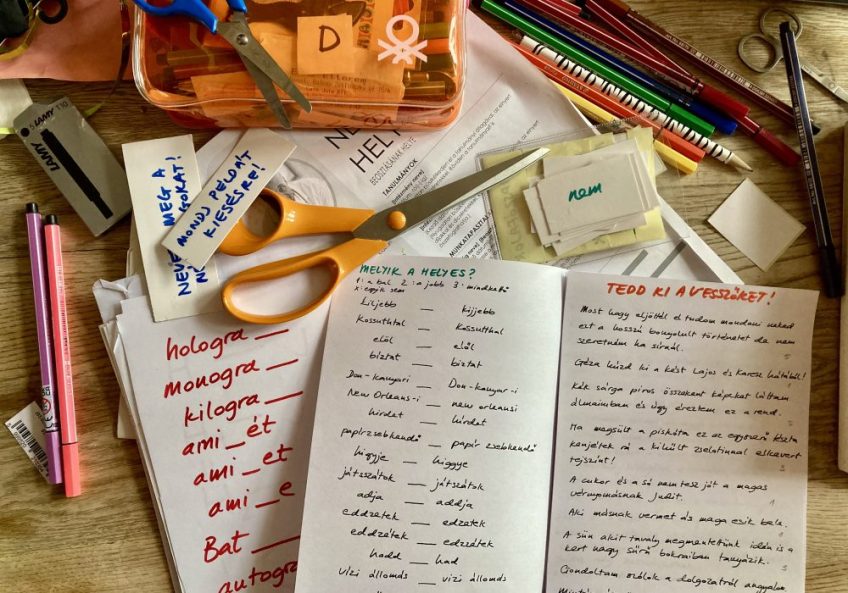 D
LAMY T10
LAMY
NEVE MEG A
MONDJ PÉLDÁT
KIESÉSRE!
HELY
BEOSZTÁSÁNAK HELYE
TANULMÁNYOK
nem
hologra __
monogra __
kilogra __
ami _ ét
ami _ et
ami _ e
Bat ___
autogra
MELYIK A HELYES?
1: a bal 2: a jobb 3: mindkettő
x: egyik sem
kiljebb — kijjebb
Kossuthtal — Kossutthal
elöl — elől
biztat — bíztat
Don-kanyari — Don-kanyar-i
New Orleans-i — new orleansi
hirdet — hírdet
papírzsebkendő — papír zsebkendő
higyje — higgye
játszátok — játszátok
adja — addja
eddzetek — edzetek
eddzétek — edzzétek
hadd — had
vízi állomás — vizi állomás
TEDD KI A VESSZŐKET!
Most hogy eljöttél el tudom mondani neked
ezt a hosszú bonyolult történetet de nem
szeretném ha sírnál.
Géza húzd ki a kést Lajos és Karcsi hátából!
Kék sárga piros összekent képeket láttam
álmaimban és úgy éreztem ez a rend.
Ha megsült a piskóta ez az egyszerű tészta
kenjétek rá a kihűlt zselatinnal elkevert
tejszínt!
A cukor és a só nem tesz jót a magas
vérnyomásnak Judit.
Aki másnak vermet ás maga esik bele.
A sün akit tavaly megmentettünk idén is a
kert nagy sűrű bokraiban tanyázik.
Gondoltam szólok a dolgozatról angyalom